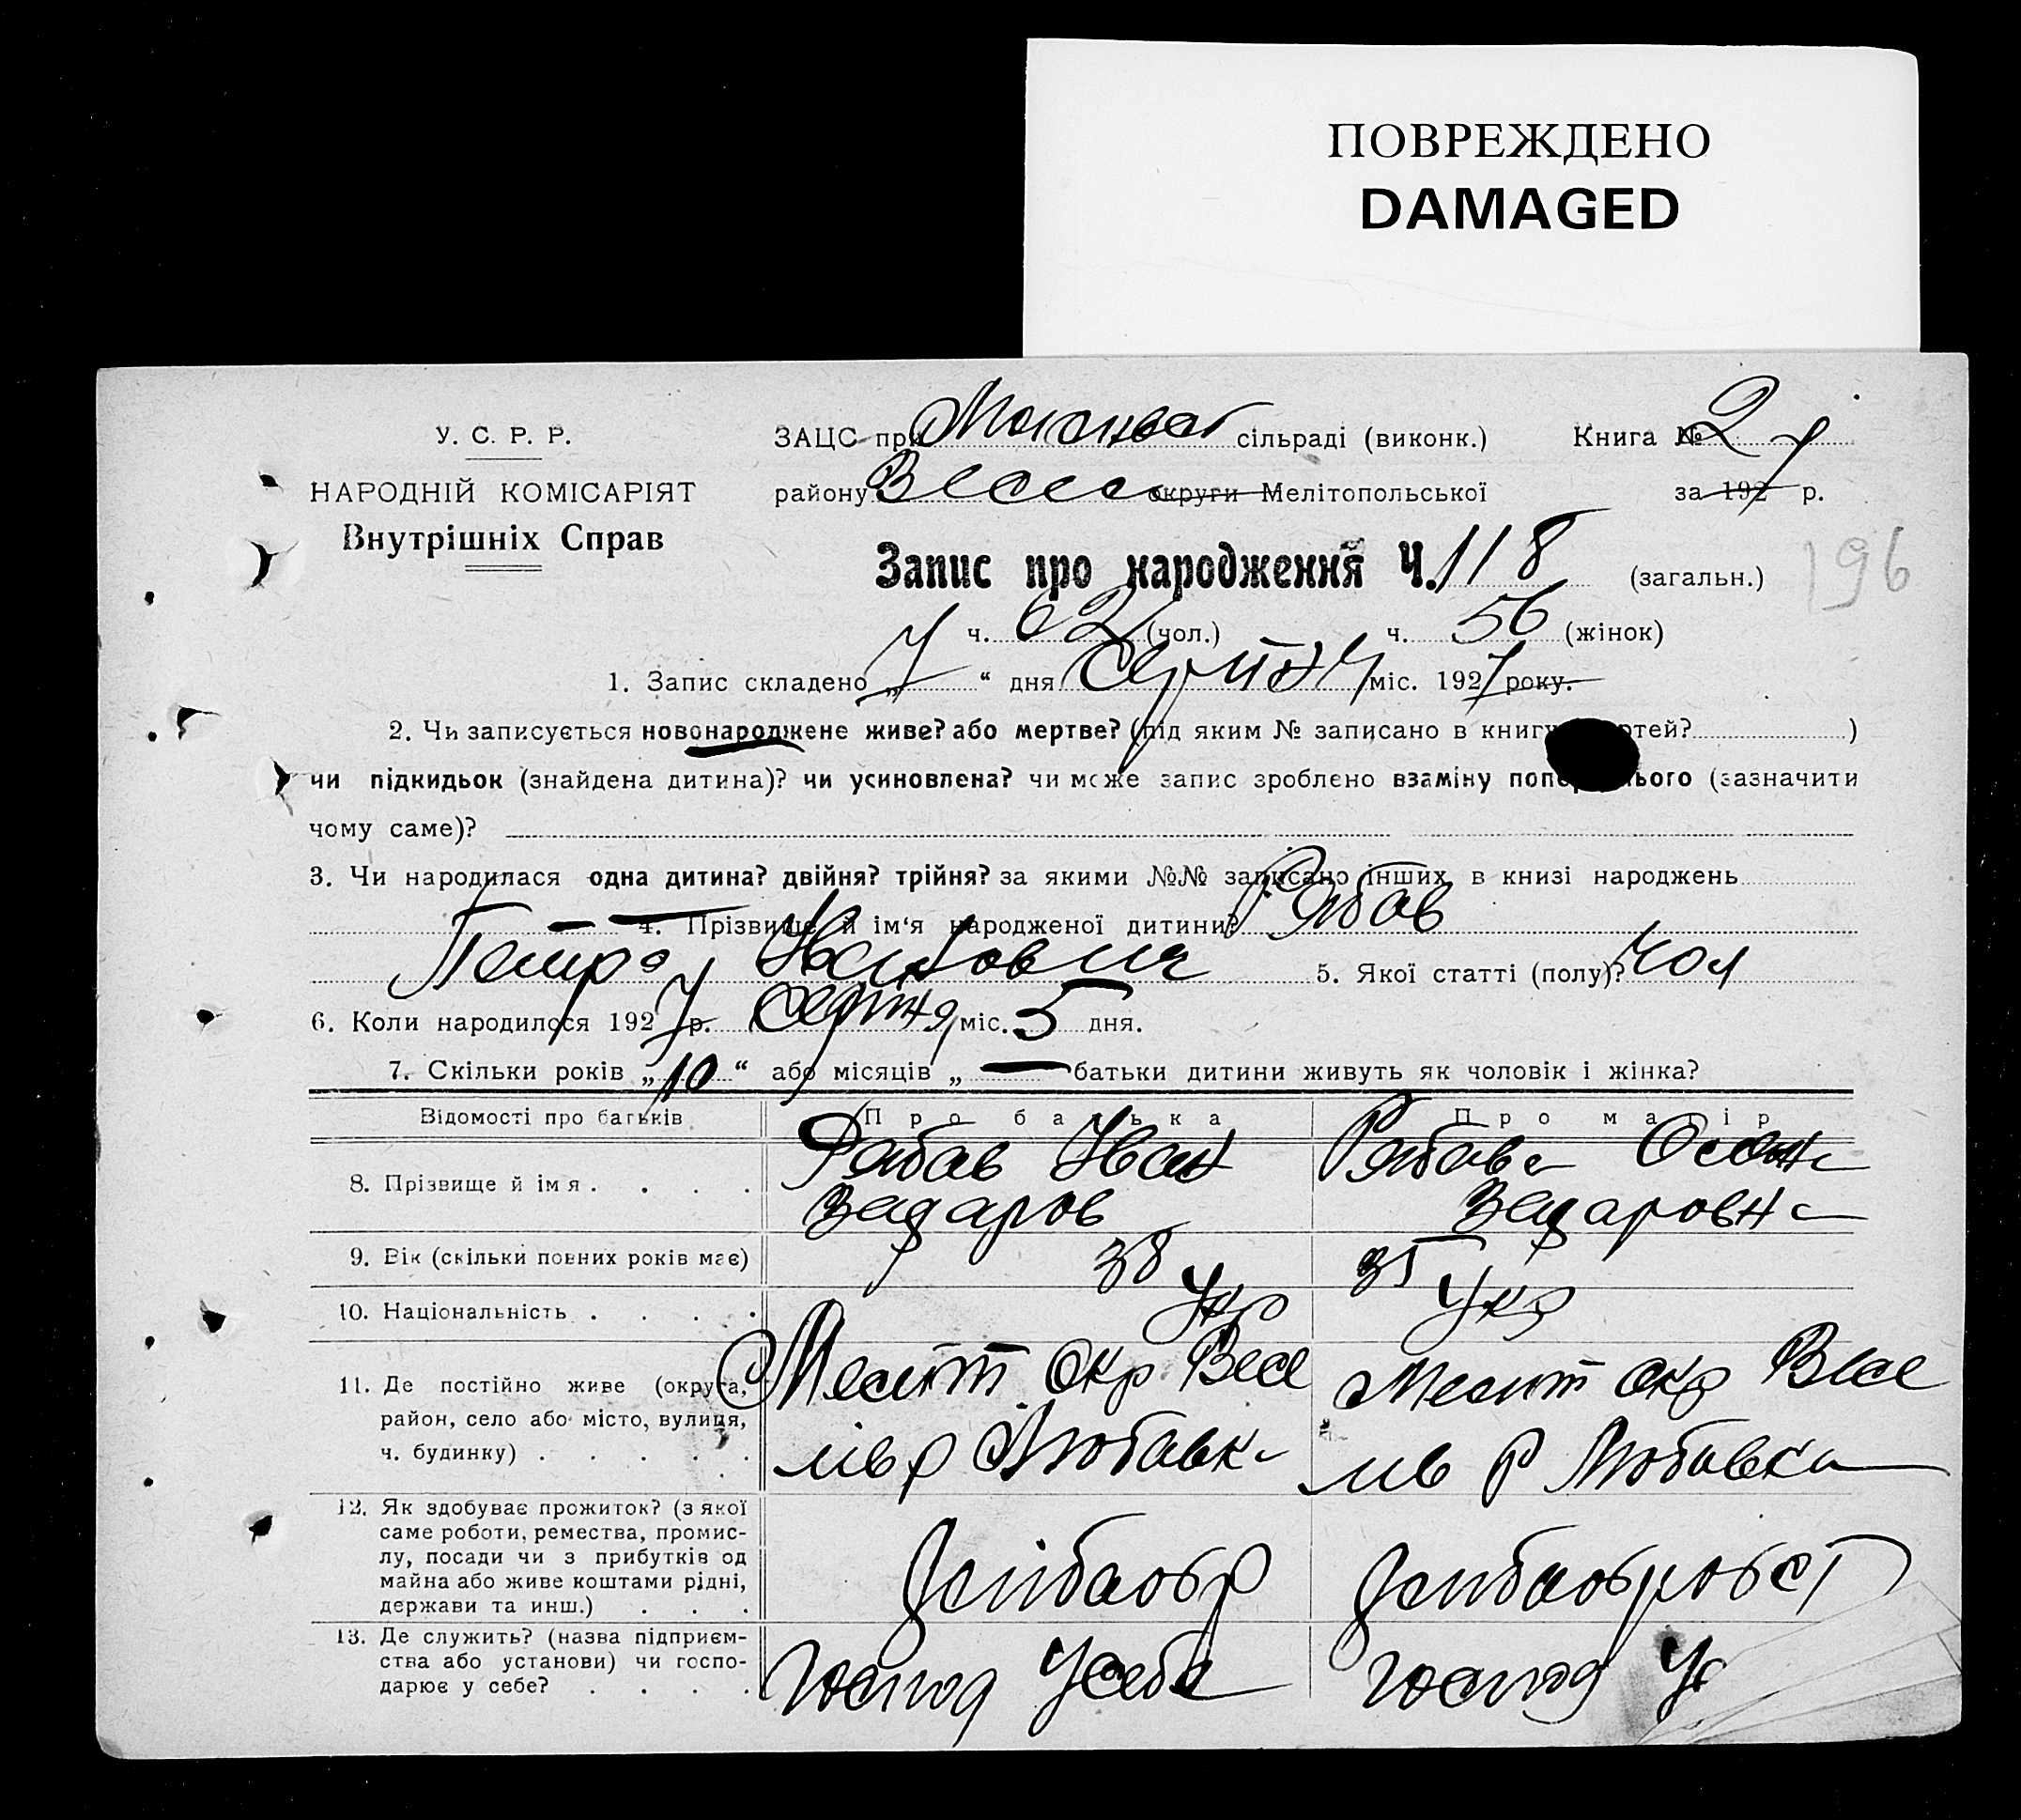 ПОВРЕЖДЕНО
DAMAGED
У. С. Р. Р.
НАРОДНІЙ КОМІСАРІЯТ
Внутрішніх Справ
ЗАЦС при сільраді (виконк.) Книга № 2
району Весел округи Мелітопольської за 192 р.
Запис про народження Ч. 118 (загальн.)
196
ч. 62 (чол.) ч. 56 (жінок)
1. Запис складено „ 7 “ дня Серпня міс. 1927 року.
2. Чи записується новонароджене живе? або мертве? (під яким № записано в книгу )
чи підкидьок (знайдена дитина)? чи усиновлена? чи може запис зроблено взаміну (зазначити
чому саме)?
3. Чи народилася одна дитина? двійня? трійня? за якими №№ записано інших в книзі народжень
4. Прізвище й ім‘я народженої дитини? Рябов
Петро Иванович 5. Якої статті (полу)? Чол
6. Коли народилося 1927 р. Серпня міс. 5 дня.
7. Скільки років „ 10 “ або місяців „ — батьки дитини живуть як чоловік і жінка?
Відомості про батьків Про батька Про матір
8. Прізвище й імя . . . . Рябов Иван Рябова
9. Вік (скільки повних років має) 38 35
10. Національність . . . . Укр Укр
11. Де постійно живе (округа, Мелит Окр Весе Мелит Окр Весе
район, село або місто, вулиця,
ч. будинку) . . . . . лів р Любовка лів Р Любовка
12. Як здобуває прожиток? (з якої
саме роботи, ремества, промис-
лу, посади чи з прибутків од
майна або живе коштами рідні,
держави та инш.) . . .
13. Де служить? (назва підприєм-
ства або установи) чи госпо-
дарює у себе? . . . . Господ Усебе Господ Ус